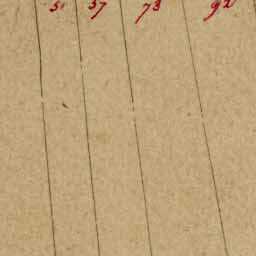 51 57 73 92